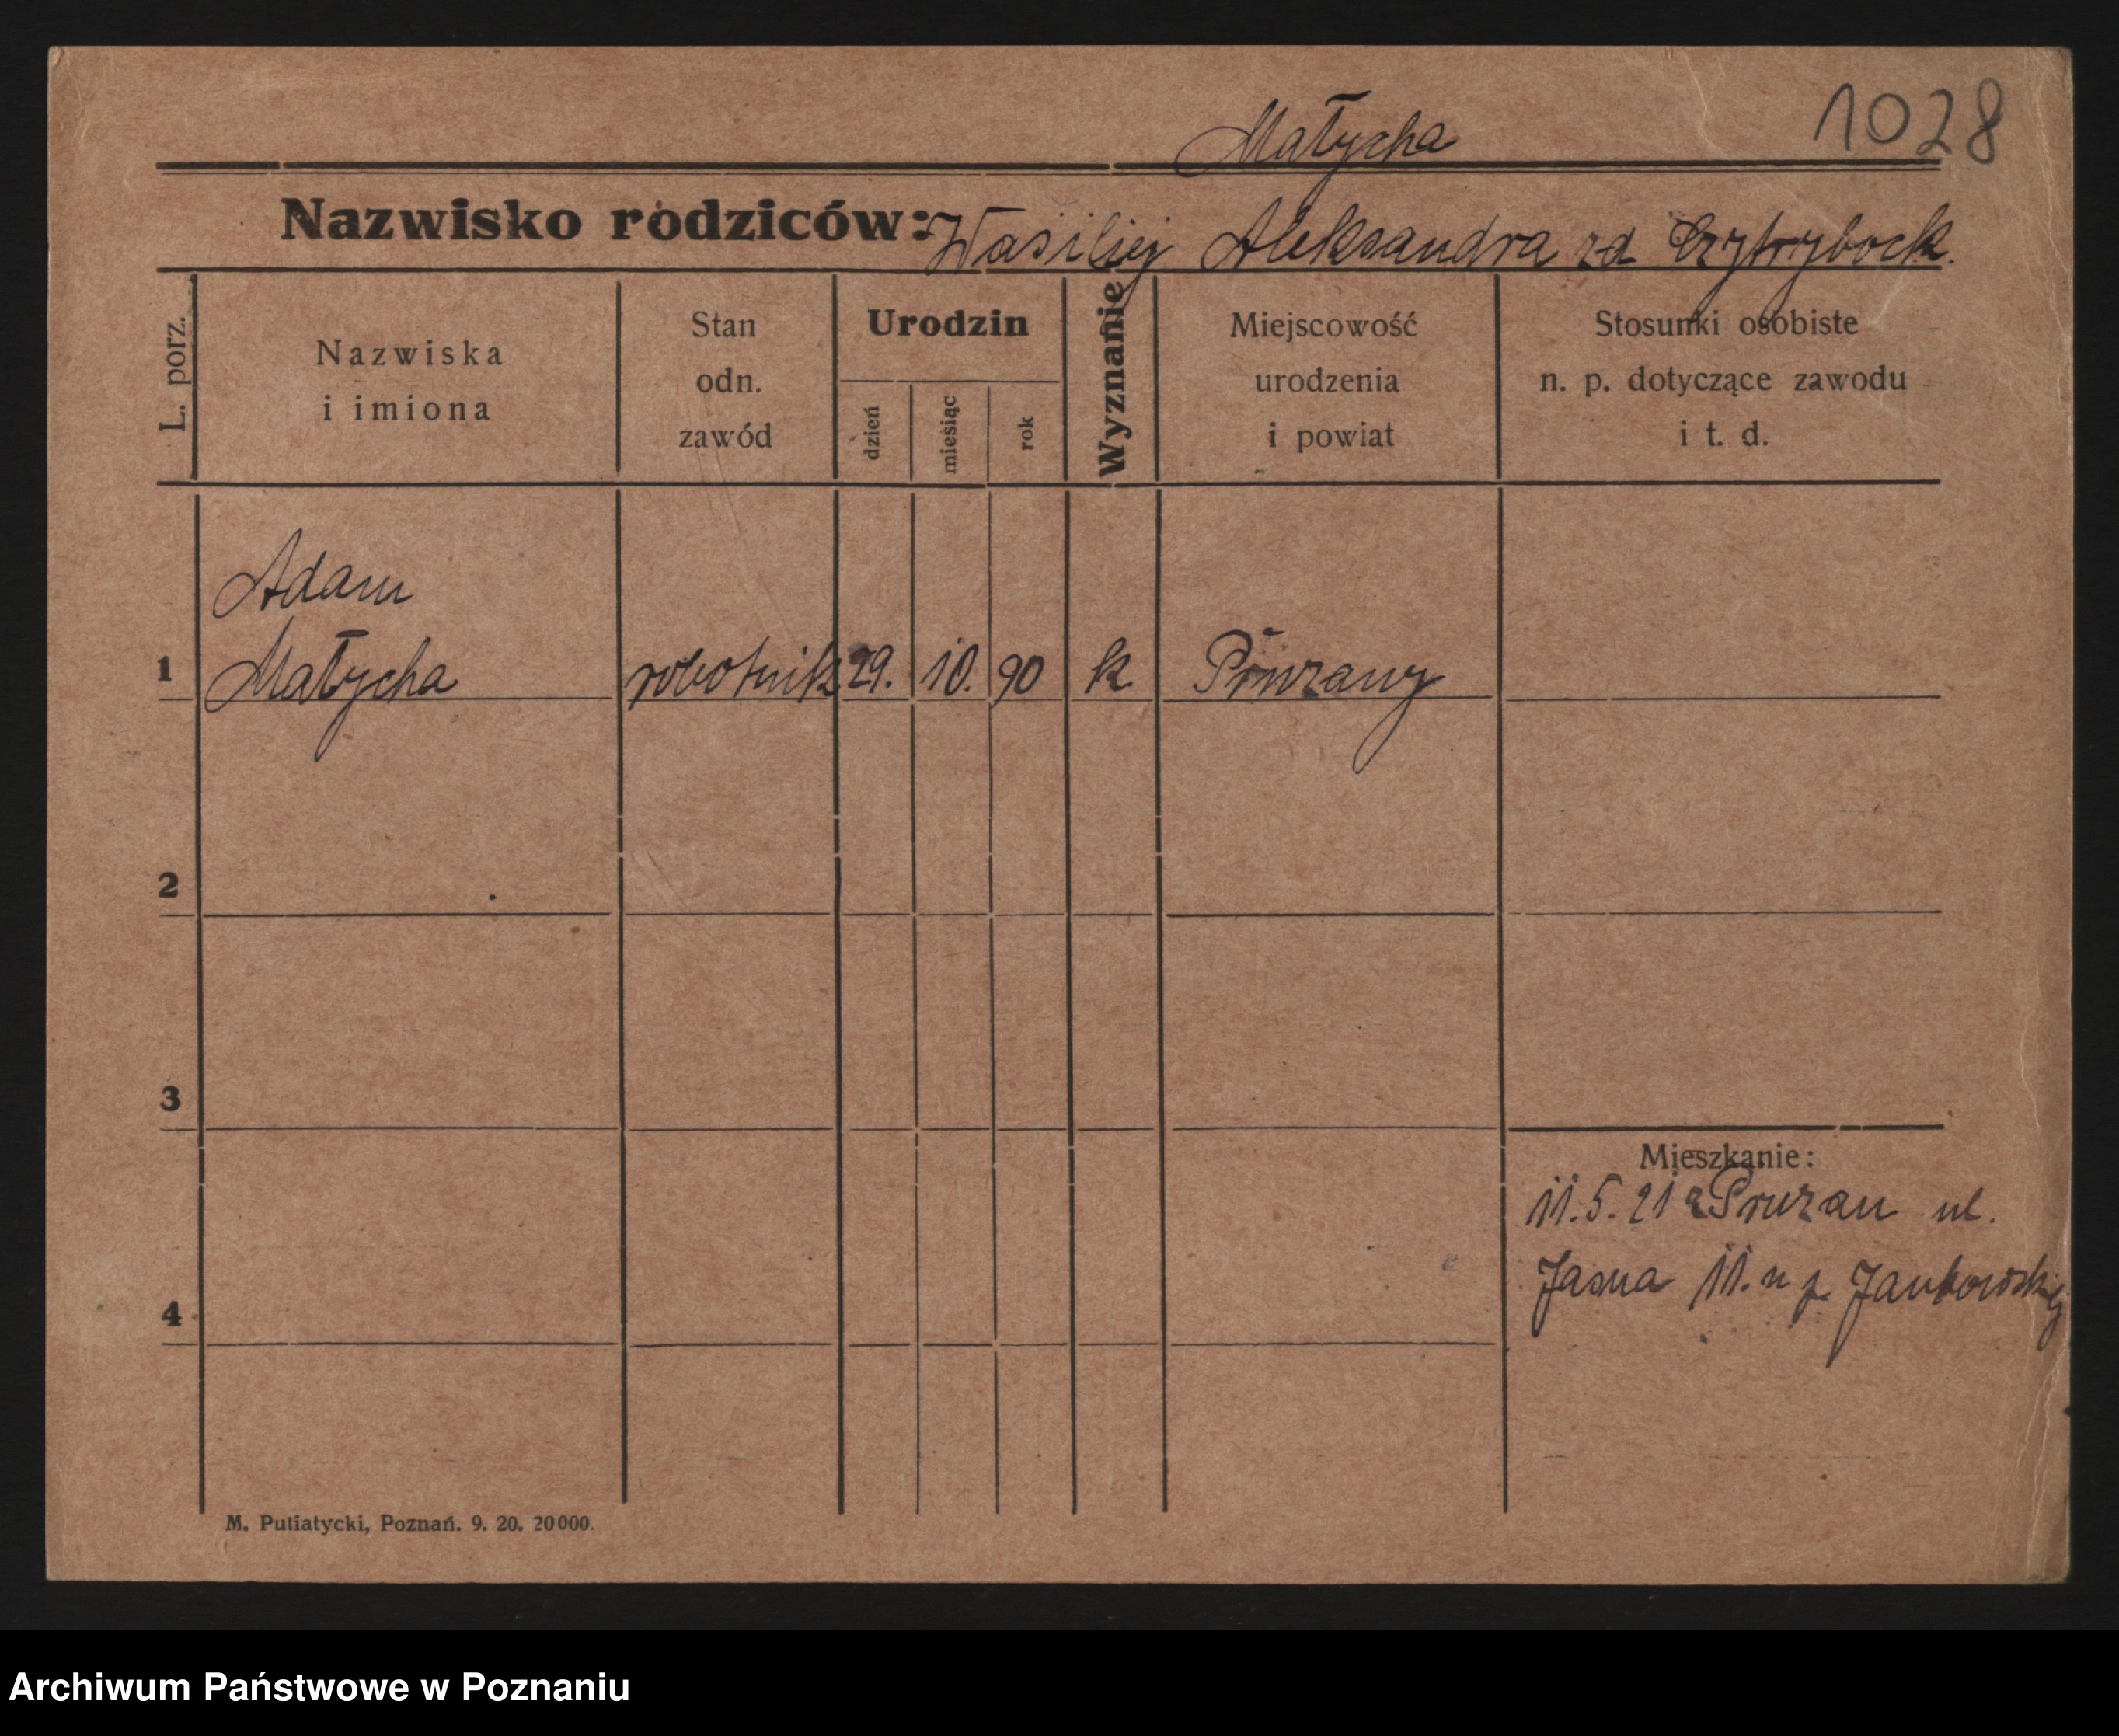 1028
Małycha
Nazwisko rodziców: Wasiliej Aleksandra zd
L. porz.
Nazwiska
i imiona
Stan
odn.
zawód
Urodzin
dzień
miesiąc
rok
Wyznanie
Miejscowość
urodzenia
i powiat
Stosunki osobiste
n. p. dotyczące zawodu
i t. d.
Adam
1 Małycha robotnik 29. 10. 90 k. Prużany
2
3
Mieszkanie:
11.5.21 z Pruzan ul.
Jasna 11. u p. Jankowskiej
4
M. Putiatycki, Poznań. 9. 20. 20000.
Archiwum Państwowe w Poznaniu